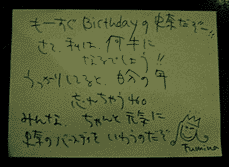 もーすぐBirthdayの史菜だぞー!!
さて、私は、何才に
なるでしょう!!
うっかりしてると、自分の年
忘れちゃう
みんな、ちゃんと元気に
史菜のバースデーを いわうのだぞ
Fumina